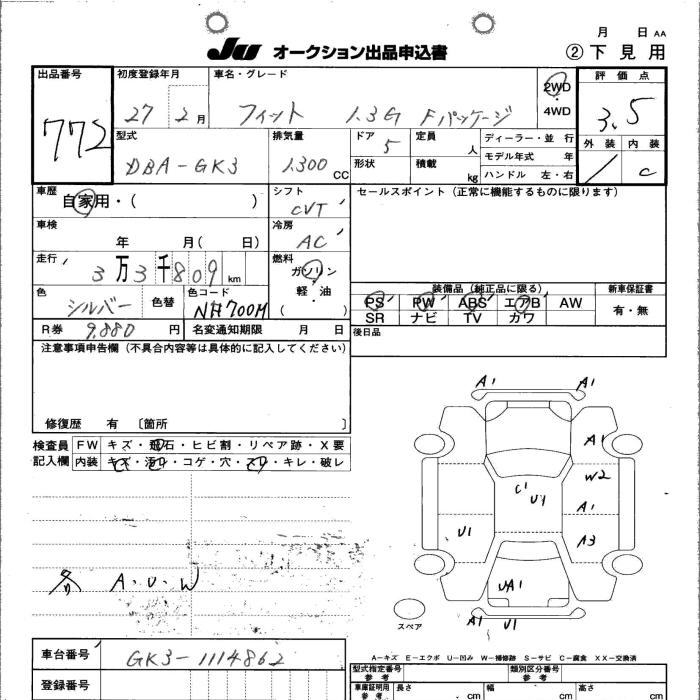 月 日 AA
JU オークション出品申込書 ②下見用
出品番号 772
初度登録年月 27 2月
車名・グレード フィット 1.3G Fパッケージ
2WD・4WD
評価点 3.5
外装 内装 C
型式 DBA-GK3
排気量 1,300 CC
ドア 5
形状
定員 人
積載 kg
ディーラー・並行
モデル年式 年
ハンドル 左・右
車歴 自家用・( )
シフト CVT
セールスポイント(正常に機能するものに限ります)
車検 年 月( 日)
冷房 AC
走行 3万3千809 km
燃料 ガソリン・軽・油 ( )
色 シルバー 色替
色コード NH700M
装備品(純正品に限る)
PS PW ABS エアB AW
SR ナビ TV カワ
新車保証書 有・無
R券 9,880 円
名変通知期限 月 日
後日品
注意事項申告欄(不具合内容等は具体的に記入してください)
修復歴 有 〔箇所 〕
検査員記入欄
FW キズ・飛石・ヒビ割・リペア跡・X要
内装 キズ・汚れ・コゲ・穴・スリ・キレ・破レ
A1 A1
A1
W2
C1 U1
A1
U1
A3
UA1
A1 U1
各 A.U.W
スペア
A-キズ E-エクボ U-凹み W-補修跡 S-サビ C-腐食 XX-交換済
車台番号 GK3-1114862
登録番号
型式指定番号 参考
類別区分番号 参考
車庫証明用 参考
長さ cm
幅 cm
高さ cm